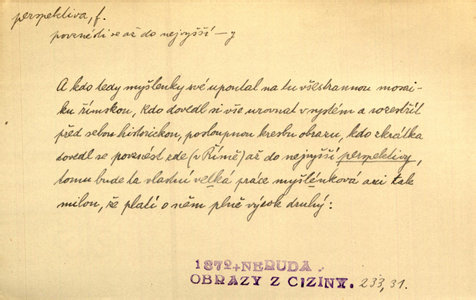 perspektiva, f.
povznésti se až do nejvyšší –y
A kdo tedy myšlenky své upoutal na tu všestrannou mosai-
ku římskou, kdo dovedl si vše urovnat v systém a rozestřít
před sebou historickou, posloupnou kresbu obrazu, kdo zkrátka
dovedl se povznést zde (v Římě) až do nejvyšší perspektivy,
tomu bude ta vlastní velká práce myšlénková asi tak
milou, že platí o něm plně výrok druhý:
1872+NERUDA
OBRAZY Z CIZINY. 233, 31.